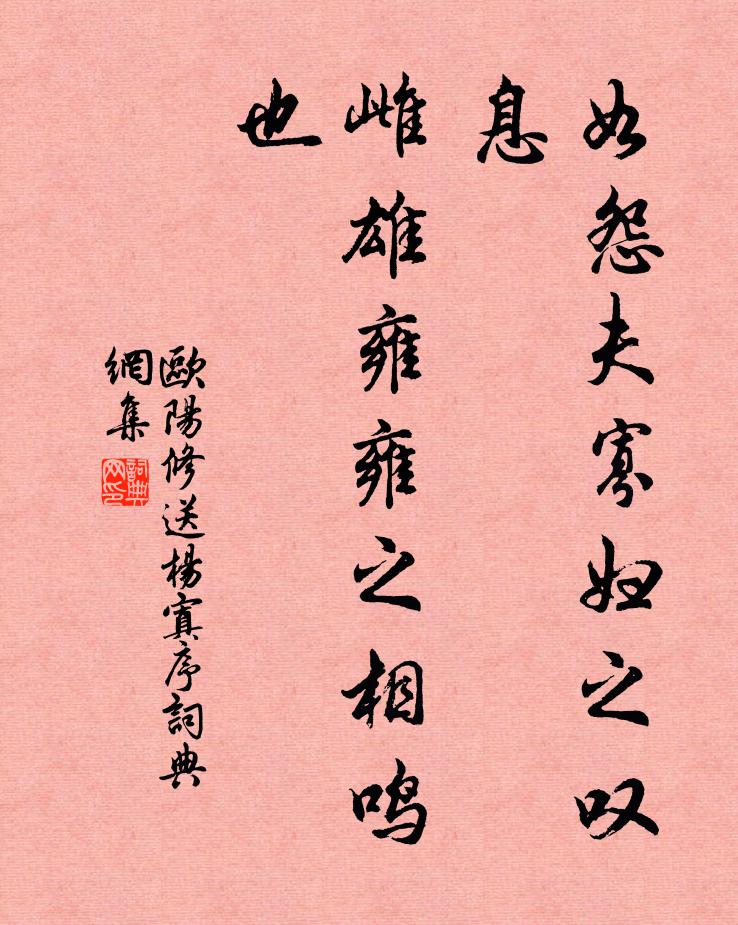 如怨夫寡妇之叹
息
雌雄雍雍之相鸣
也
歐陽修送楊寘序詞典
網集
詞典
网印